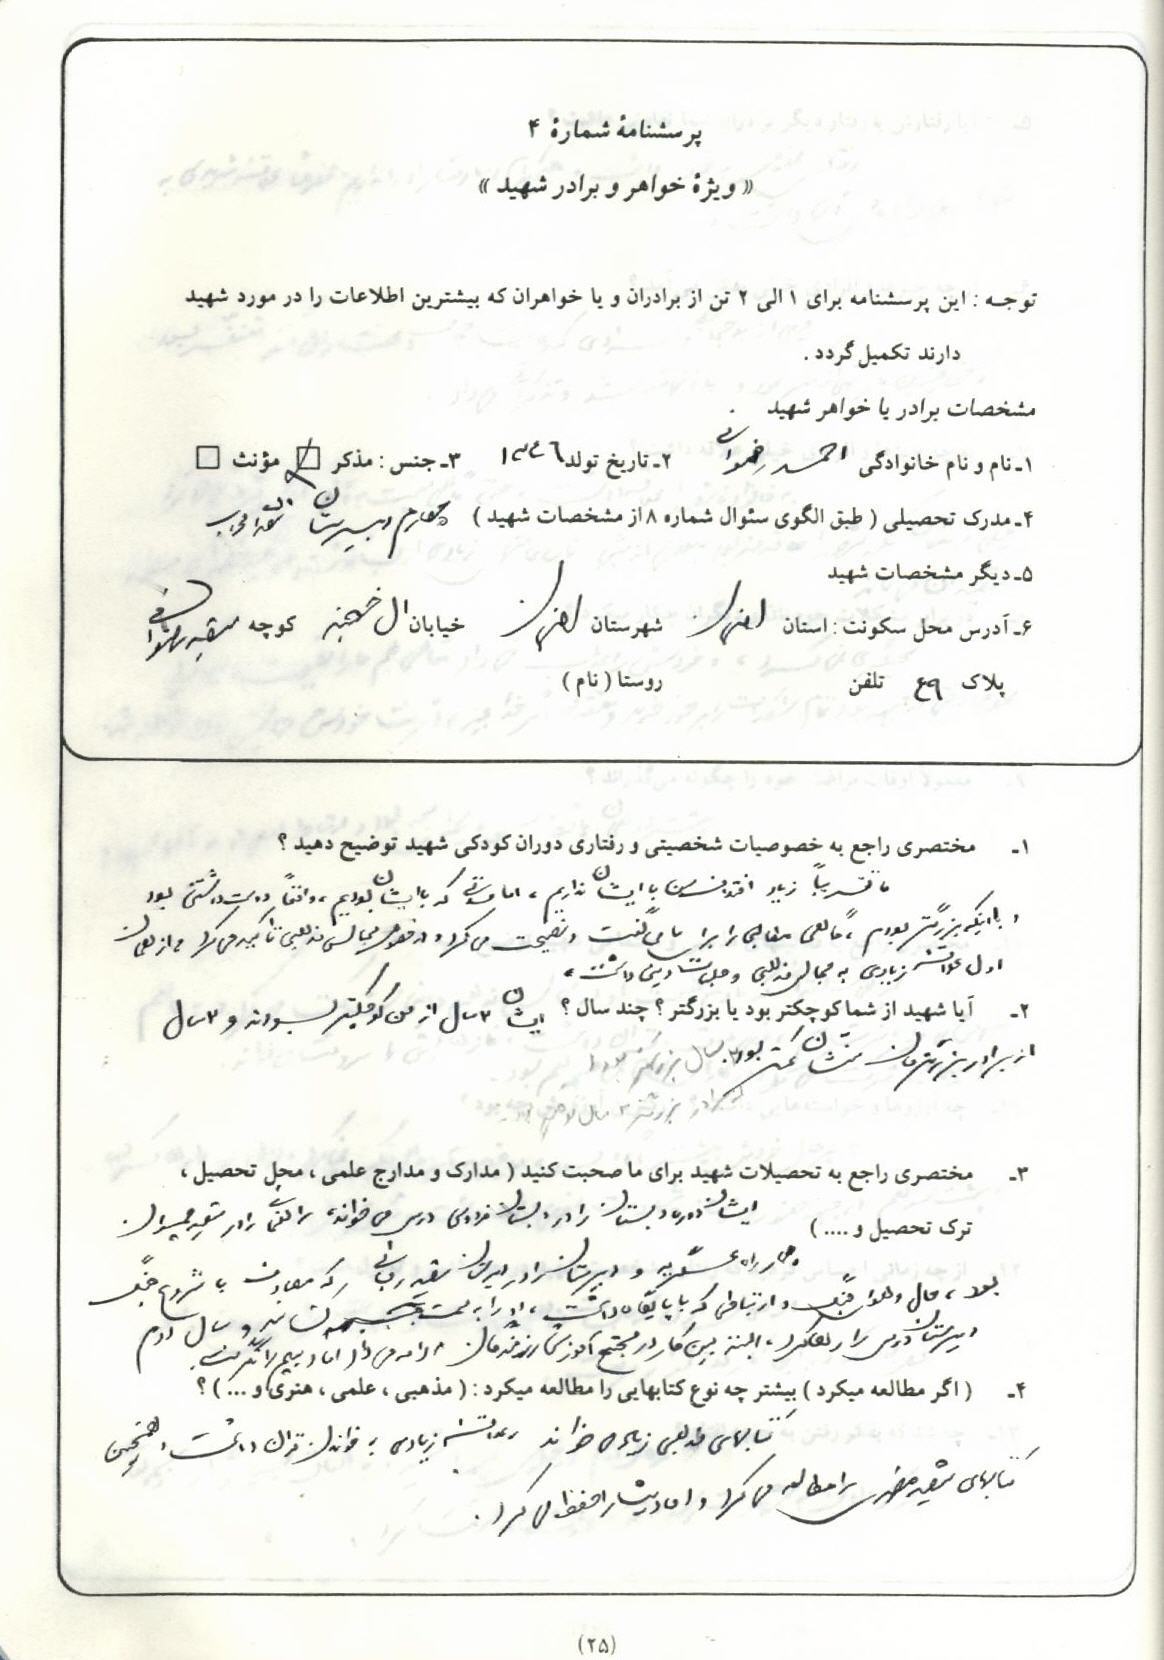 پرسشنامهٔ شمارهٔ ۴
« ویژهٔ خواهر و برادر شهید »
توجـه : این پرسشنامه برای ۱ الی ۲ تن از برادران و یا خواهران که بیشترین اطلاعات را در مورد شهید
دارند تکمیل گردد .
مشخصات برادر یا خواهر شهید .
۱ـ نام و نام خانوادگی احمد رضوانی ۲ـ تاریخ تولد ۱۳۴۶ ۳ـ جنس : مذکر مؤنث
۴ـ مدرک تحصیلی ( طبق الگوی سئوال شماره ۸ از مشخصات شهید ) چهارم دبیرستان
۵ـ دیگر مشخصات شهید
۶ـ آدرس محل سکونت : استان شهرستان خیابان ال خمینی کوچه شهید رضوانی
پلاک ۴۹ تلفن روستا ( نام )
۱ـ مختصری راجع به خصوصیات شخصیتی و رفتاری دوران کودکی شهید توضیح دهید ؟
ما تقریباً زیاد با ایشان نداریم ، اما که با ایشان بودیم ، واقعاً دوست داشتنی بود
و با اینکه بزرگتر بودم ، گاهی مطالبی را برای ما می گفت و نصیحت می کرد و مجالس مذهبی تاکید می کرد و از همان
اول علاقه زیادی به مجالس مذهبی و دینی داشت ،
۲ـ آیا شهید از شما کوچکتر بود یا بزرگتر ؟ چند سال ؟ ایشان ۳ سال از من کوچکتر بودند و ۳ سال
از برادر بزرگترمان کمتر بود
۳ـ مختصری راجع به تحصیلات شهید برای ما صحبت کنید ( مدارک و مدارج علمی ، محل تحصیل ،
ترک تحصیل و .... ) ایشان دوره دبستان را در دبستان فردوسی درس می خواند ، راهنمایی را در شهید
چهار راه عسگریه و دبیرستان را در دبیرستان شهید که مصادف با شروع جنگ
بود ، حال و هوای جنگ و ارتباطی که با پایگاه داشت ، او را به سمت جبهه کشانید و سال دوم
دبیرستان درس را رها کرد ، البته بین کار در مجتمع آموزشی رزمندگان ادامه می داد اما
۴ـ ( اگر مطالعه میکرد ) بیشتر چه نوع کتابهایی را مطالعه میکرد : ( مذهبی ، علمی ، هنری و ... ) ؟
کتابهای مذهبی زیاد می خواند و علاقه زیادی به خواندن قرآن داشت و همچنین
کتابهای شهید مطهری را مطالعه می کرد و احادیث را حفظ می کرد .
(۲۵)